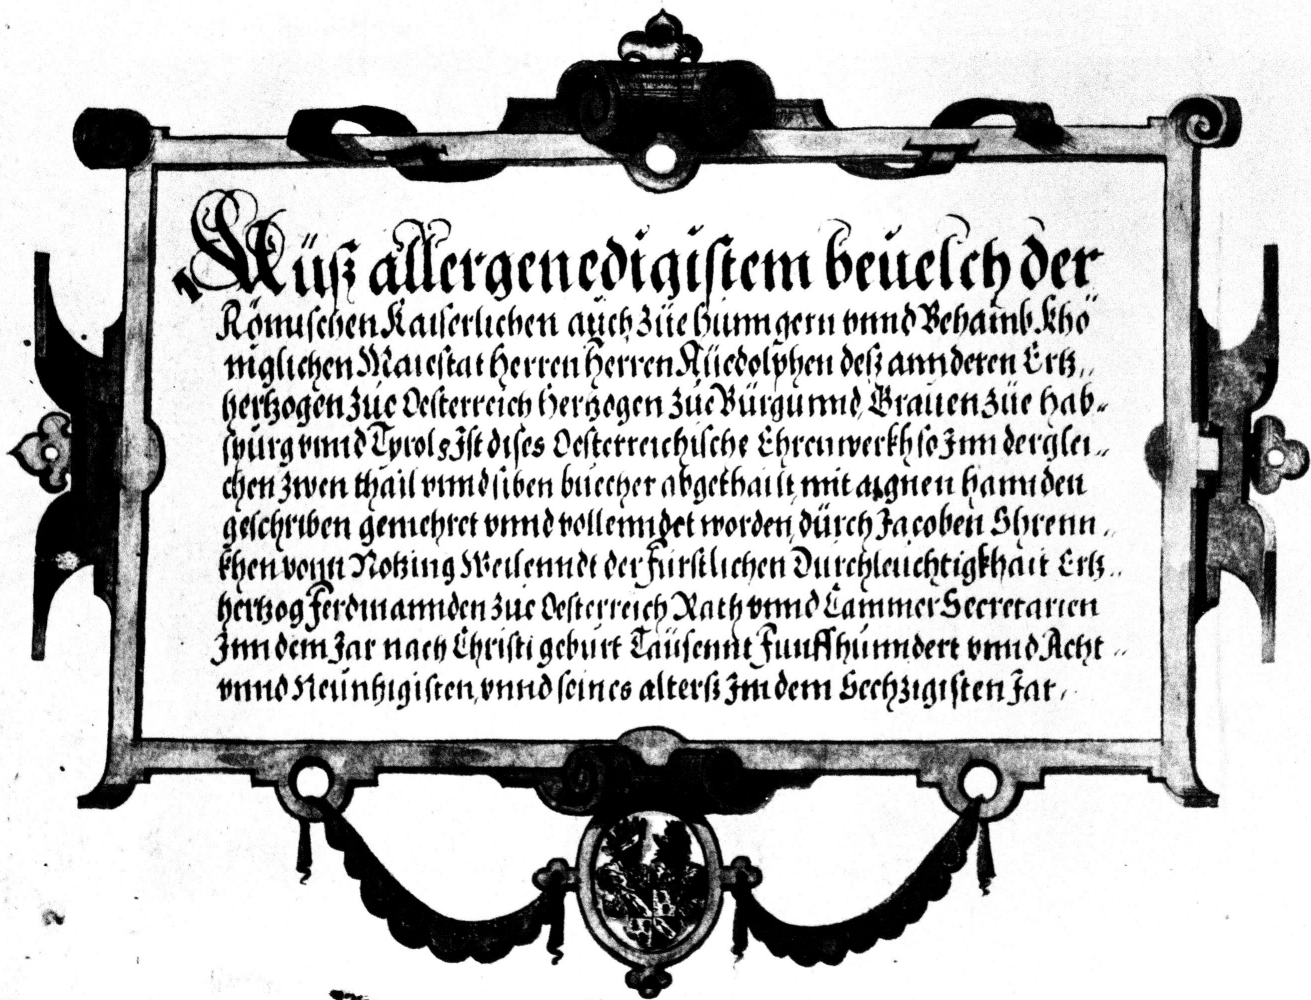 Auß allergenedigistem beuelch der
Römischen Kaiserlichen auch zue Hunngern vnnd Behaimb Khö
niglichen Maiestat Herren Herren Rüedolphen deß annderen Ertz„
hertzogen zue Oesterreich Hertzogen zue Burgunnd, Grauen zue Hab„
spurg vnnd Tyrols Ist dises Oesterreichische Ehrenwerkh so Inn derglei„
chen zwen thail vnnd siben buecher abgethailt, mit aignen hannden
geschriben gemehret vnnd vollenndet worden, durch Jacoben Schrenn„
khen vonn Notzing Weilenndt der Fürstlichen Durchleuchtigkhait Ertz„
hertzog Ferdinannden zue Oesterreich Rath vnnd Cammer Secretarien
Inn dem Jar nach Christi geburt Tausennt Funffhunndert vnnd Acht„
vnnd Neunhigisten, vnnd seines alterß Im dem Sechzigisten Jar.